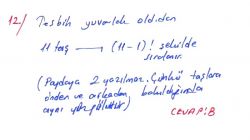 12/ Tesbih yuvarlak oldıdan
11 taş → (11-1)! şekilde
sıralanır.
(Paydaya 2 yazılmaz. Çünkü taşlara
önden ve arkadan bakıldığında
aynı
CEVAP:B